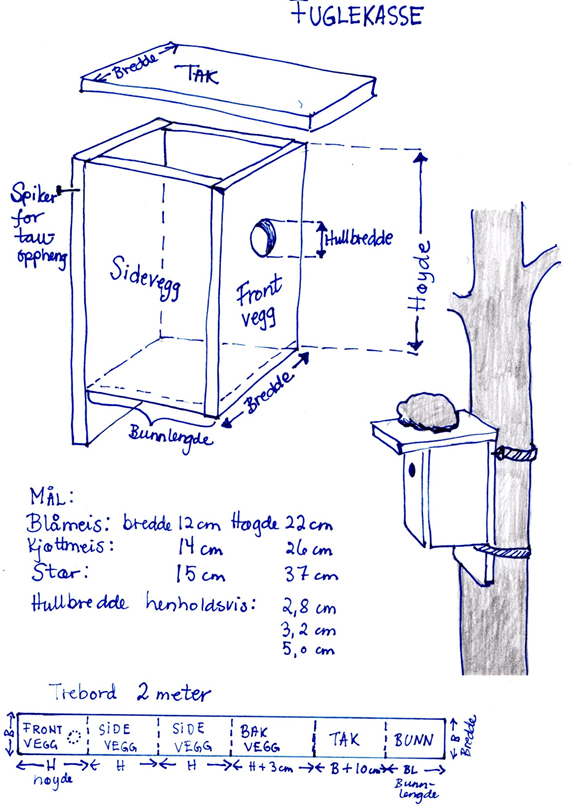 FUGLEKASSE
Bredde
TAK
Spiker
for
tau-
oppheng
Sidevegg
Front
vegg
Hullbredde
Høyde
Bredde
Bunnlengde
MÅL:
Blåmeis: bredde 12 cm Høgde 22 cm
Kjøttmeis: 14 cm 26 cm
Stær: 15 cm 37 cm
Hullbredde henholdsvis: 2,8 cm
3,2 cm
5,0 cm
Trebord 2 meter
B
FRONT VEGG
SIDE VEGG
SIDE VEGG
BAK VEGG
TAK
BUNN
B
Bredde
H H H H+3cm B+10cm BL
høyde
Bunn-
lengde